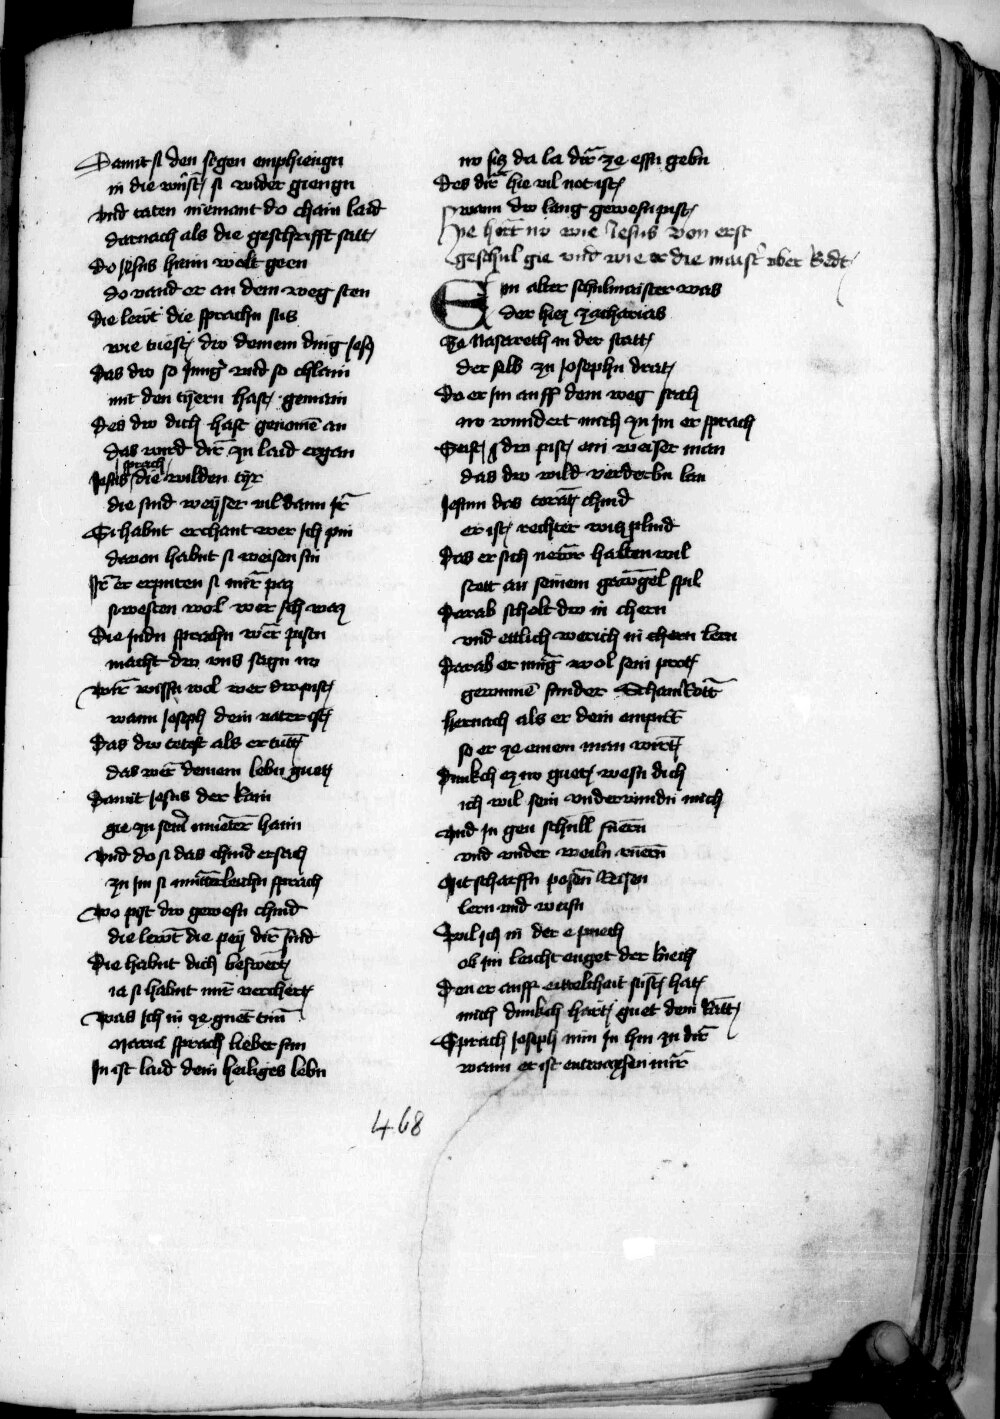 Damit si den segen emphiengn
in die wüst si wider giengn
vnd taten niemant do chain laid
darnach als die geschrifft sait
do Jesus haim wolt geen
do vand er an dem weg sten
die lewt die sprachn sus
wie tuest dw deinem ding
das dw so Jung vnd so chlain
mit den tyern hast gemain
Des dw dich hast genomē an
das wird dir zu laid ergan
Jesus sprach die wilden tyr
die sind weyser vil dann Jr
Si habnt erchant wer Jch pin
dauon habnt si weisen sin
Jr er erputen si mir paz
si westen wol wer Jch waz
Die Judn sprachn
macht dw vns sagn nw
wir wissn wol wer dw pist
wann Joseph dein vater ist
Das dw tetest als er tutt
das wer deinem lebn guet
Damit Jesus der rain
gie zu seinr mueter haim
vnd do si das chind ersach
zu Jm si mutterleichn sprach
wo pist dw gewesn chind
die lewt die pey dir sind
Die habnt dich beswert
ia si habnt mir verchert
was Jch in ze guet tun
Maria sprach lieber sun
Jn ist laid dein heiliges lebn
nw sitz da la dir ze essn gebn
Des dir hie vil not ist
wann dw lang gewesn pist
Hie hort nw wie Jesus von erst
geschul gie vnd wie er die maistr vber redt
Ein alter schulmaister was
der hiez zacharias
Ze Nasareth in der statt
der selb zu Josephn drat
Do er Jm auff dem weg sach
nw wundert mich zu Jm er sprach
Seist dw pist ein weiser man
das dw wild verderbn lan
Jesum das chind
er ist rechter witz plind
Das er sich newr halten wil
stett an seinem gewgel spil
Darab scholt dw in chern
vnd ettlich werich in chern lern
Darab er mug wol sein prot
gewinnē sunder Scham rott
hernach als er dein enpirt
so er ze einem man wirt
Dunkch ez nw guet wesn dich
ich wil sein vnderwindn mich
vnd in gen schull fuern
vnd vnder weiln ruern
Mit scharffn posen Reisen
lern vnd weisn
wil ich in der e puech
ob im leicht enget der fluech
Den er auff eittelchait sust hat
mich dunkch hart guet dein Ratt
Sprach Joseph nim in hin zu dir
wann er ist entwachsen mir
468